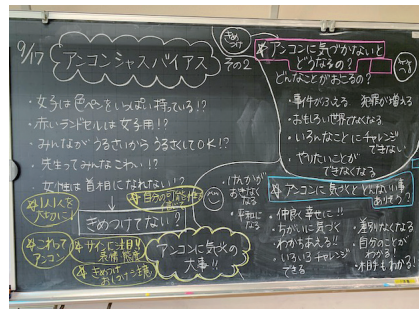 9/17
アンコンシャスバイアス
その2
きめつけ
・女子は色ペンをいっぱい持っている!?
・赤いランドセルは女子用!?
・みんながうるさいからうるさくしてOK!?
・先生ってみんなこわい!?
・女性は首相になれない!?
きめつけてない?
☆1人1人を
大切に!
☆これって
アンコン
☆サインに注目!
表情・態度
☆きめつけ
おしつけ注意
☆自分の可能性
アンコンに気づくの
大事!!
☆アンコンに気づかないと
どうなるの?
どんなことがおこるの?
・事件がふえる 犯罪が増える
・おもしろい世界でなくなる
・いろんなことにチャレンジ
できない
・やりたいことが
できなくなる
・けんかが
おきなく
なる
・平和に
なる
☆アンコンに気づくとどんないい事
ありそう?
・仲良く幸せに!!
・ちがいに気づく
わかちあえる!!
・いろいろチャレンジ
できる
・差別がなくなる
・自分のことが
わかる!
・相手もわかる!